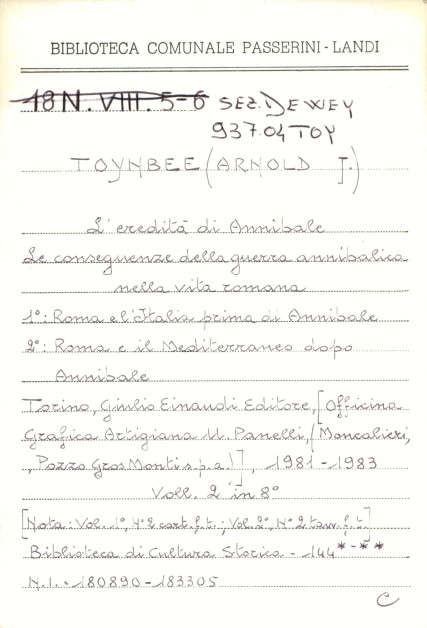 BIBLIOTECA COMUNALE PASSERINI - LANDI
18 N. VIII. 5-6 SEZ. DEWEY
937.04 TOY
TOYNBEE (ARNOLD J.)
L'eredità di Annibale
Le conseguenze della guerra annibalica
nella vita romana
1°: Roma e l'Italia prima di Annibale
2°: Roma e il Mediterraneo dopo
Annibale
Torino, Giulio Einaudi Editore, [Officina
Grafica Artigiana U. Panelli, (Moncalieri,
, Pozzo Gros Monti s.p.a.)], 1981-1983
Voll. 2 in 8°
[Nota: Vol. 1°, N°2 cart. f. t.; Vol. 2°, N°2 tavv. f. t.]
Biblioteca di Cultura Storica - 144*-**
N.I. - 180890-183305
C